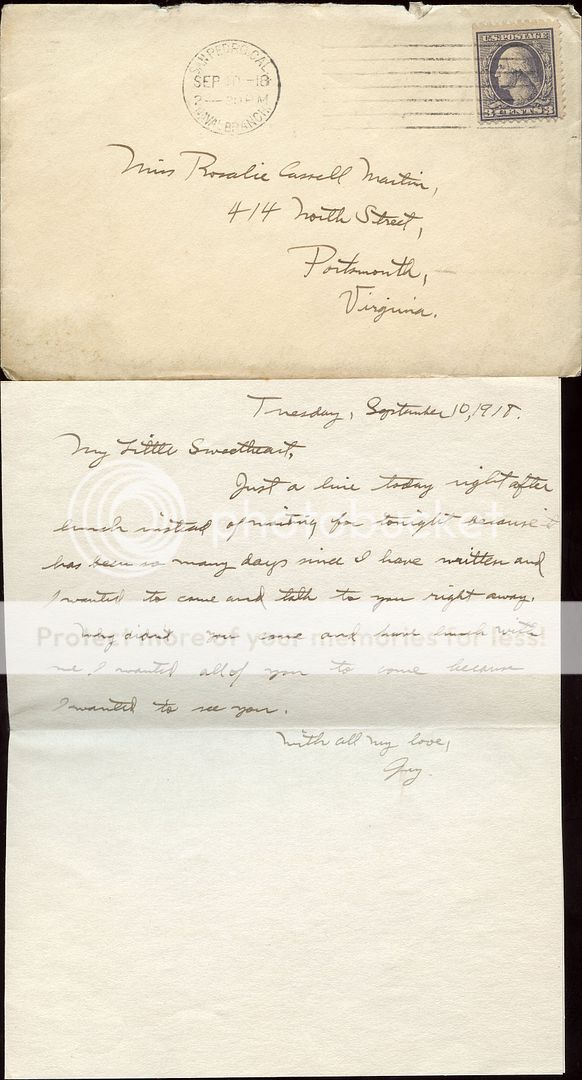 SAN PEDRO, CAL.
SEP 10 -18
30 PM
NAVAL BRANCH
U.S. POSTAGE
3 CENTS 3
Miss Rosalie Cassell Martin,
414 North Street,
Portsmouth,
Virginia.
Tuesday, September 10, 1918.
My Little Sweetheart,
Just a line today right after
lunch instead of waiting for tonight because it
has been so many days since I have written and
I wanted to come and talk to you right away.
Why didn't you come and have lunch with
me. I wanted all of you to come because
I wanted to see you.
With all my love,
photobucket
Protect more of your memories for less!